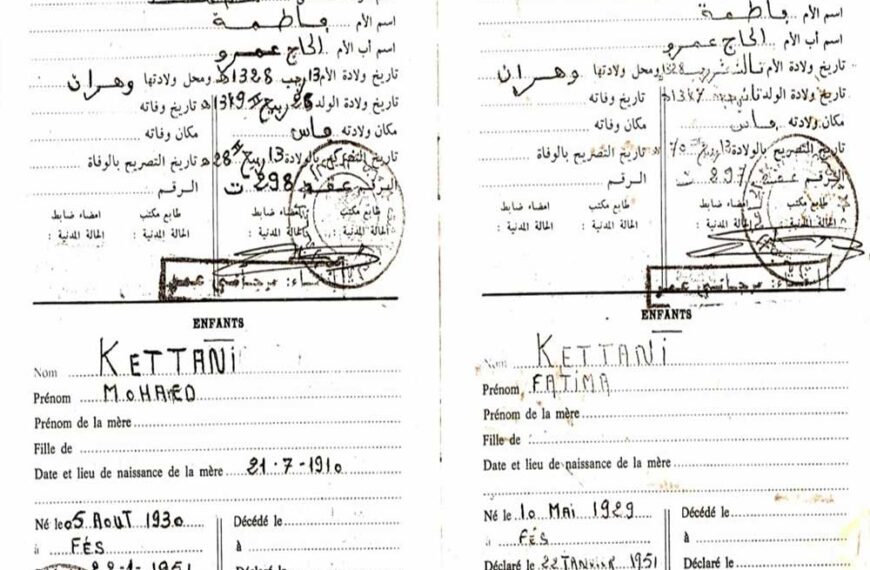 اسم الأم فاطمة
اسم أب الأم الحاج عمرو
تاريخ ولادة الأم 13 رجب 1328ه ومحل ولادتها وهران
تاريخ ولادة الولد 28 ربيع II 1349ه تاريخ وفاته
مكان ولادته فاس مكان وفاته
تاريخ التصريح بالولادة 13 ربيع II تاريخ التصريح بالوفاة
الرقم عقد 298 ت الرقم
طابع مكتب امضاء ضابط طابع مكتب امضاء ضابط
الحالة المدنية : الحالة المدنية : الحالة المدنية : الحالة المدنية :
ENFANTS
Nom KETTANi
Prénom MOHAED
Prénom de la mère
Fille de
Date et lieu de naissance de la mère 21-7-1910
Né le 05 AOUT 1930 Décédé le
à FÉS à
22-1-1951 Déclaré le
اسم الأم فاطمة
اسم أب الأم الحاج عمرو
تاريخ ولادة الأم رجب 1328 ومحل ولادتها وهران
تاريخ ولادة الولد 1347ه تاريخ وفاته
مكان ولادته فاس مكان وفاته
تاريخ التصريح بالولادة 13 ربيع II 70 تاريخ التصريح بالوفاة
الرقم 297 ت الرقم
طابع مكتب امضاء ضابط طابع مكتب امضاء ضابط
الحالة المدنية : الحالة المدنية : الحالة المدنية : الحالة المدنية :
ENFANTS
Nom KETTANi
Prénom FATIMA
Prénom de la mère
Fille de :
Date et lieu de naissance de la mère
Né le 10 MAI 1929 Décédé le
à FÉS à
Déclaré le 22 JANVIER 1951 Déclaré le